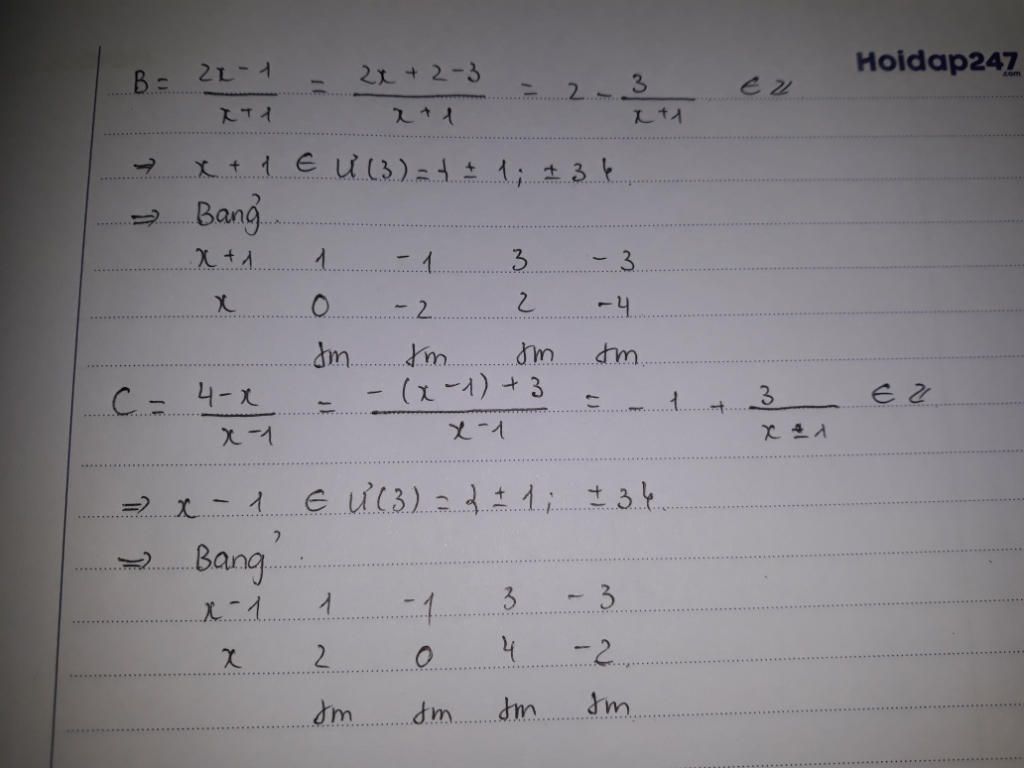 Hoidap247.com
B = (2x - 1)/(x + 1) = (2x + 2 - 3)/(x + 1) = 2 - 3/(x + 1) ∈ Z
⇒ x + 1 ∈ Ư(3) = {± 1; ± 3}
⇒ Bảng
x + 1 1 - 1 3 - 3
x 0 - 2 2 - 4
tm tm tm tm
C = (4 - x)/(x - 1) = (- (x - 1) + 3)/(x - 1) = - 1 + 3/(x - 1) ∈ Z
⇒ x - 1 ∈ Ư(3) = {± 1; ± 3}
⇒ Bảng
x - 1 1 - 1 3 - 3
x 2 0 4 - 2
tm tm tm tm